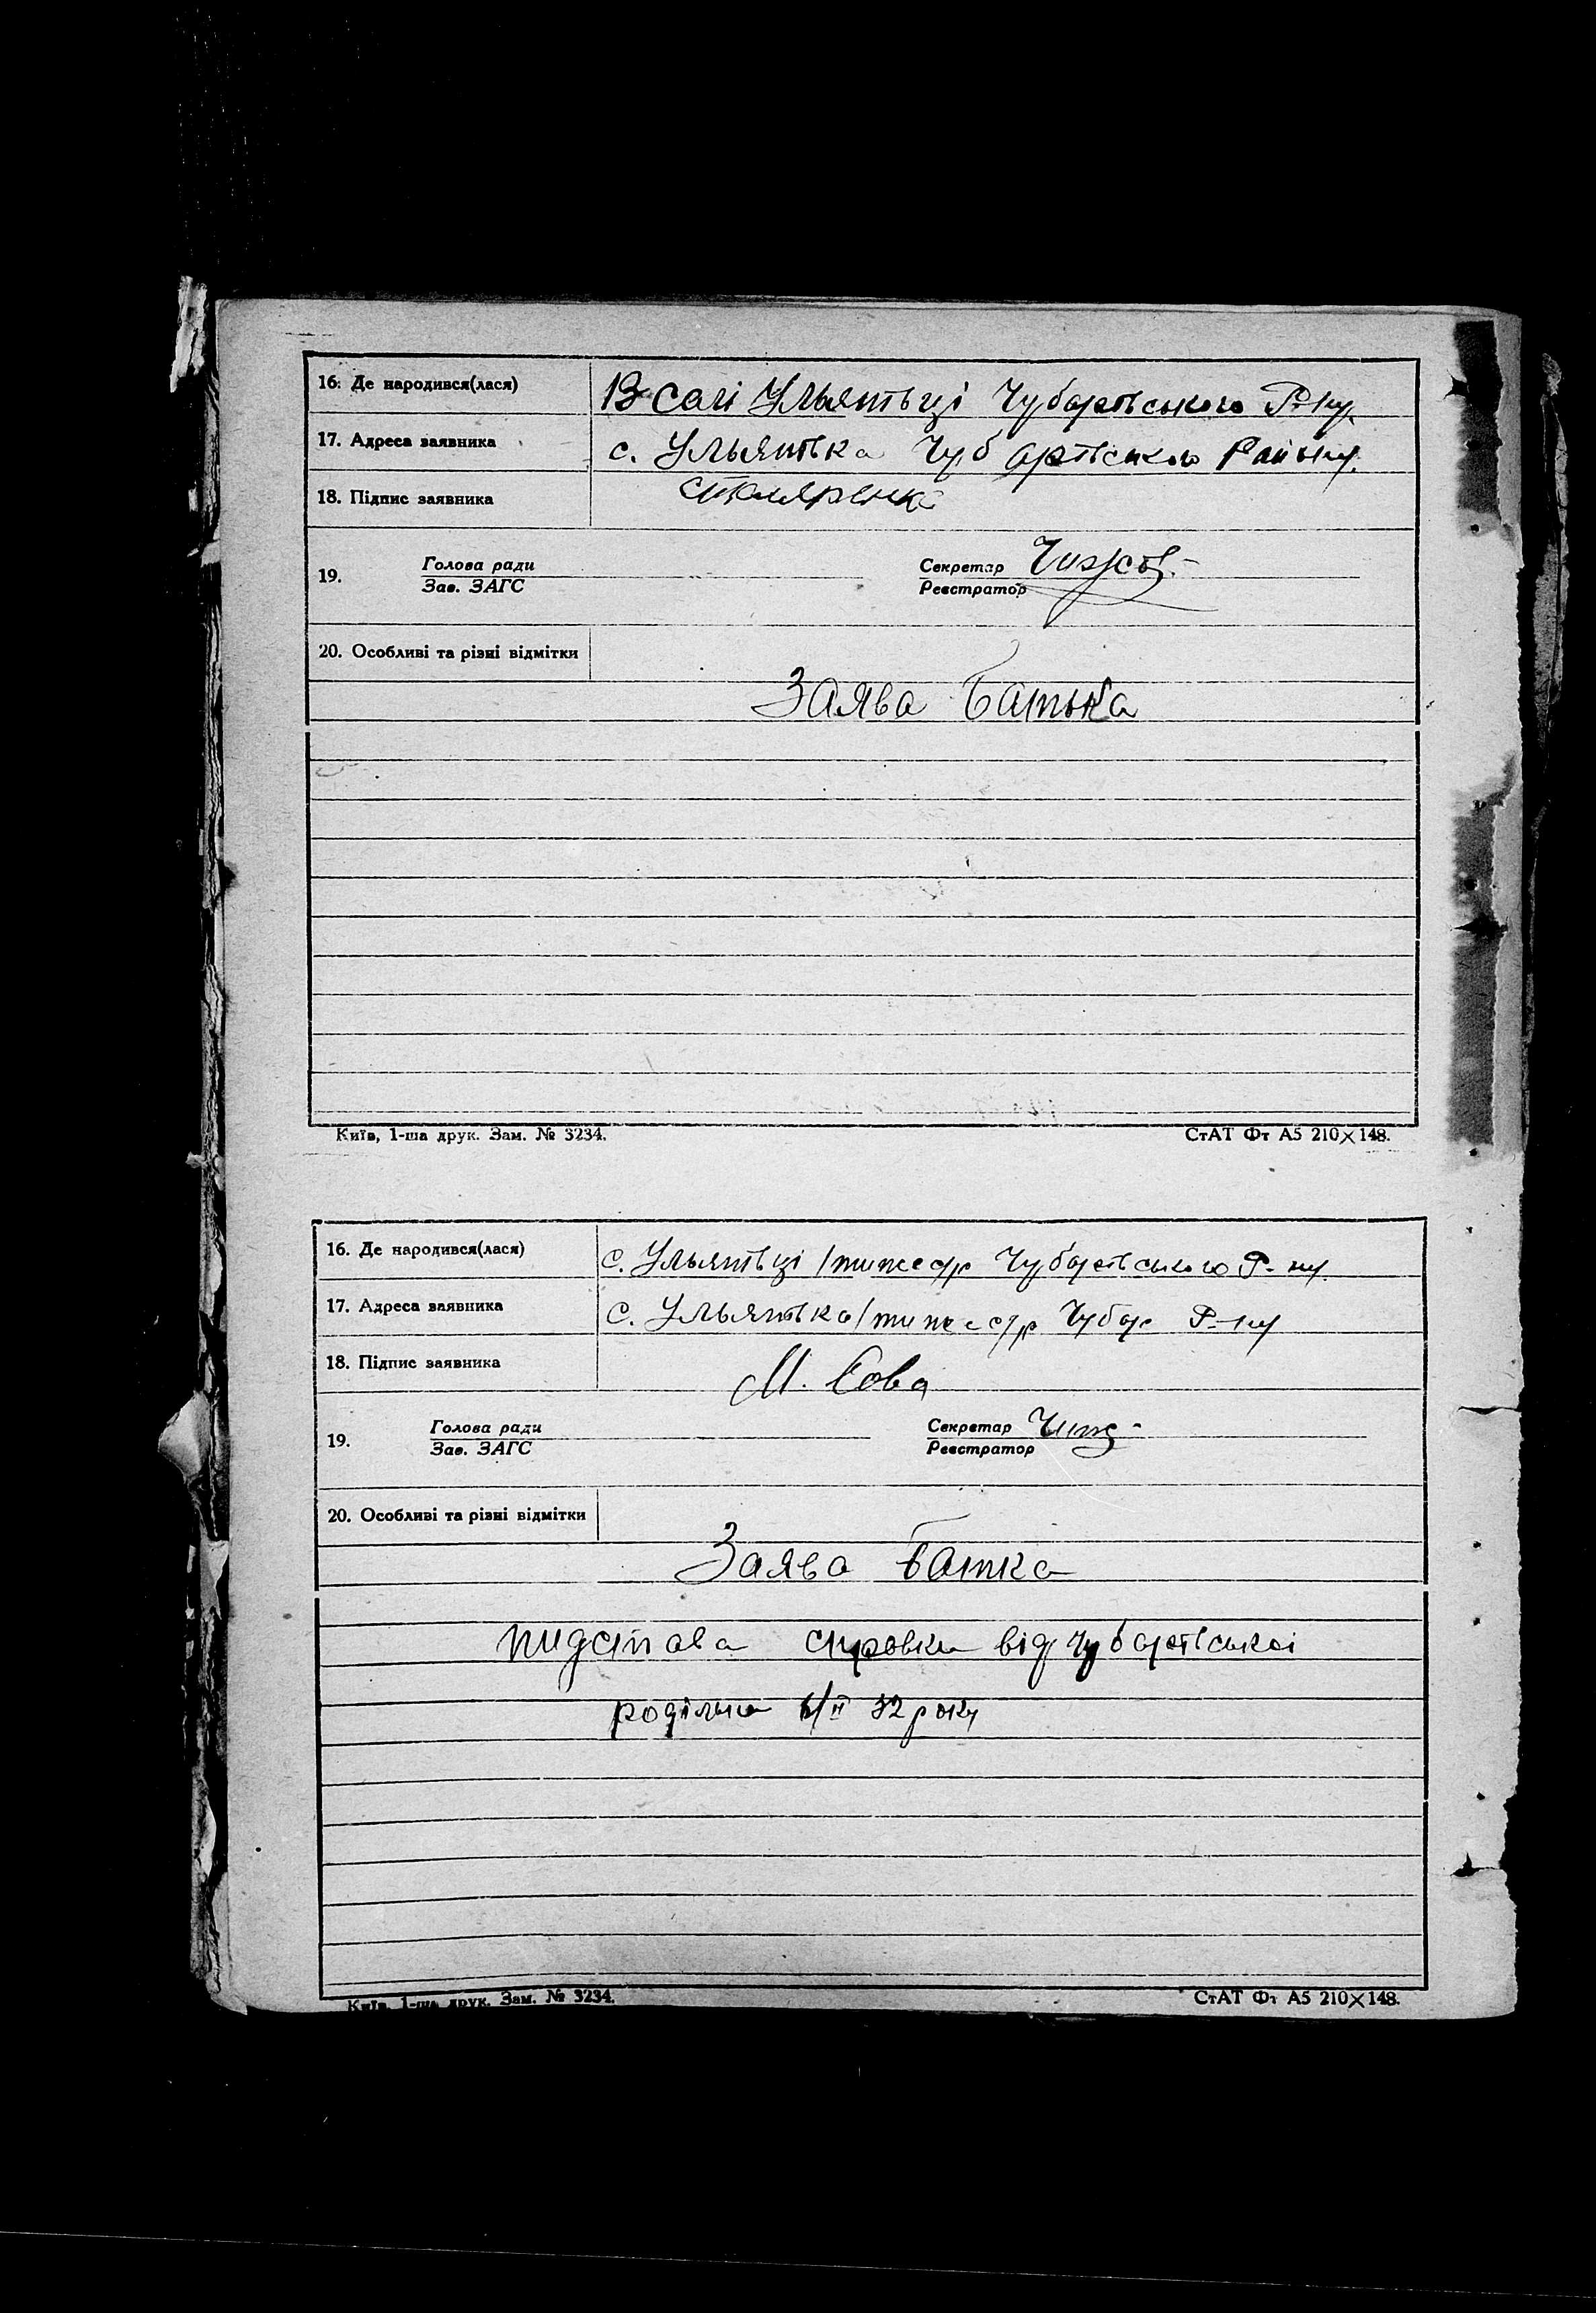 16. Де народився(лася) В селі Ульянівці Чубарівського Р-ну
17. Адреса заявника с. Ульянівка Чубарівського Району.
18. Підпис заявника Столяренко
19. Голова ради Секретар
Зав. ЗАГС Реєстратор
20. Особливі та різні відмітки
Заява батька
Київ, 1-ша друк. Зам. № 3234. СтАТ Фт А5 210×148.
16. Де народився(лася) с. Ульянівці Чубарівського Р-ну
17. Адреса заявника с. Ульянівка Чубар Р-ну
18. Підпис заявника М. Сова
19. Голова ради Секретар
Зав. ЗАГС Реєстратор
20. Особливі та різні відмітки
Заява батка
пидстава справки від Чубарівської
32 року
Київ, 1-ша друк. Зам. № 3234. СтАТ Фт А5 210×148.